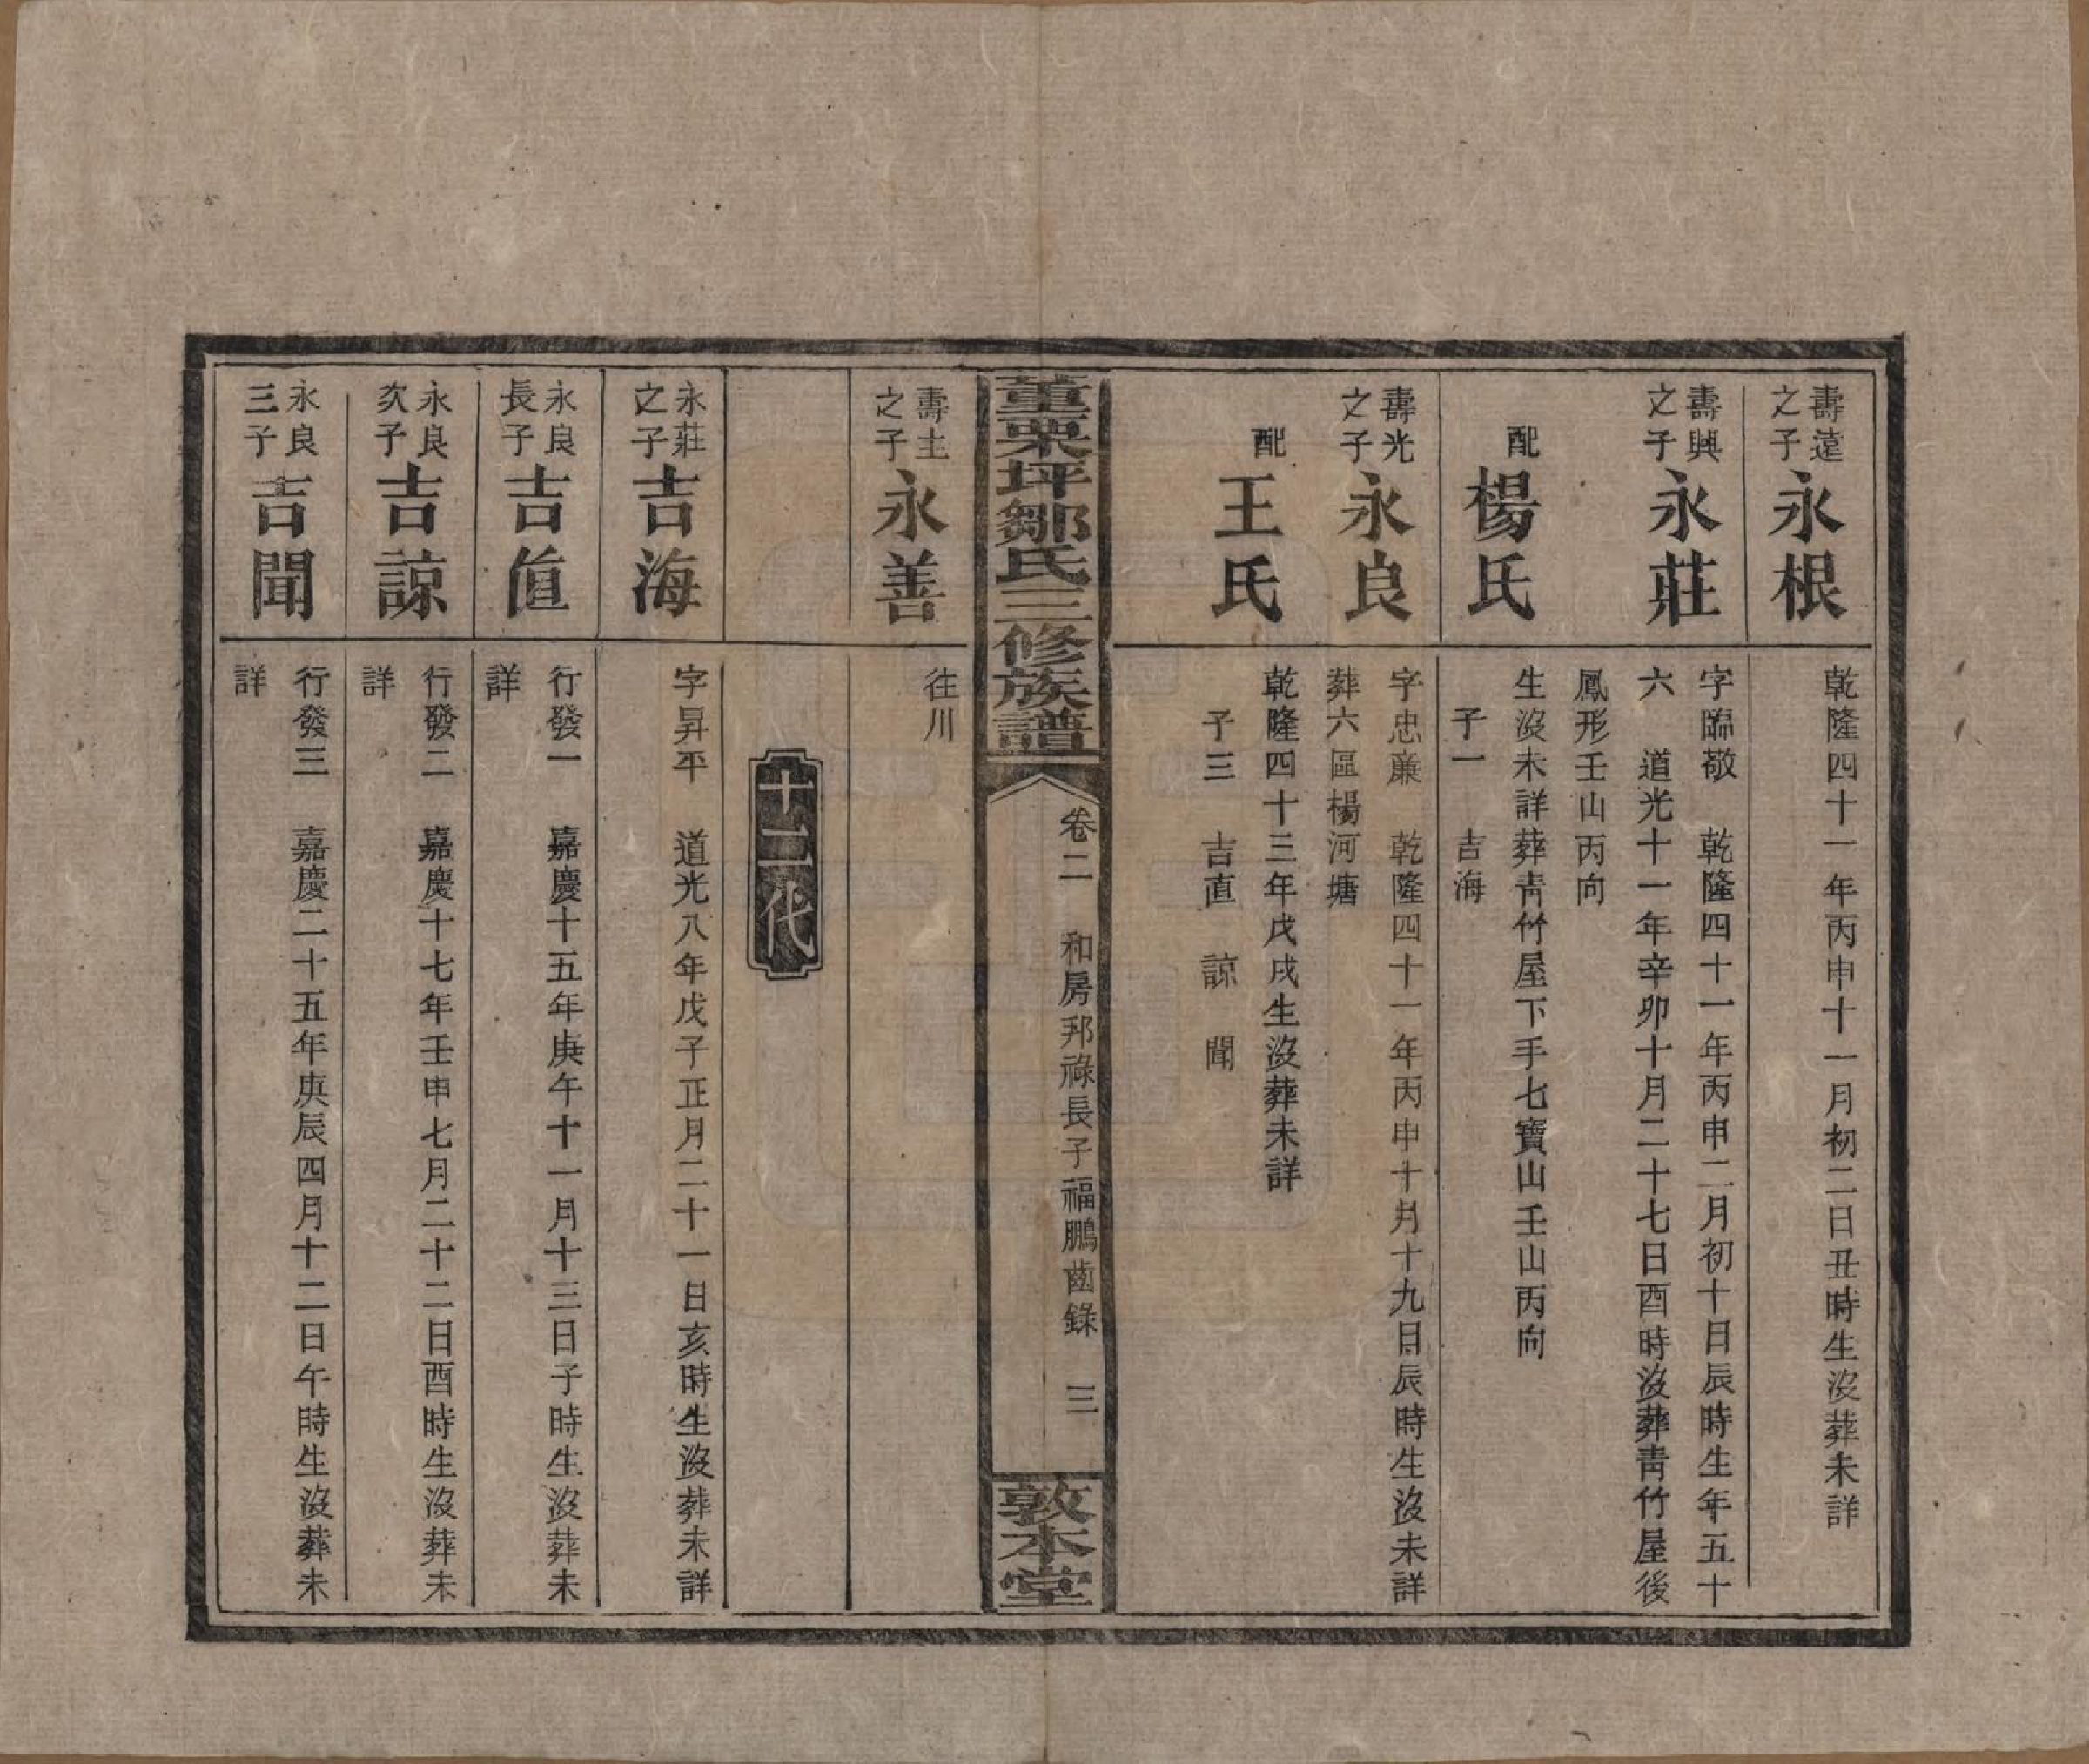 壽遠之子 永根
乾隆四十一年丙申十一月初二日丑時生沒葬未詳
壽興之子 永莊
字臨敬 乾隆四十一年丙申二月初十日辰時生年五十
六 道光十一年辛卯十月二十七日酉時沒葬靑竹屋後
鳳形壬山丙向
配 楊氏
生沒未詳葬靑竹屋下手七寶山壬山丙向
子一 吉海
壽光之子 永良
字忠亷 乾隆四十一年丙申十月十九日辰時生沒未詳
葬六區楊河塘
配 王氏
乾隆四十三年戊戌生沒葬未詳
子三 吉直 諒 聞
董栗坪鄒氏三修族譜
卷二 和房邦祿長子福鵬齒錄 三
敦本堂
壽土之子 永善
往川
十二代
永莊之子 吉海
字昇平 道光八年戊子正月二十一日亥時生沒葬未詳
永良長子 吉直
行發一 嘉慶十五年庚午十一月十三日子時生沒葬未
詳
永良次子 吉諒
行發二 嘉慶十七年壬申七月二十二日酉時生沒葬未
詳
永良三子 吉聞
行發三 嘉慶二十五年庚辰四月十二日午時生沒葬未
詳